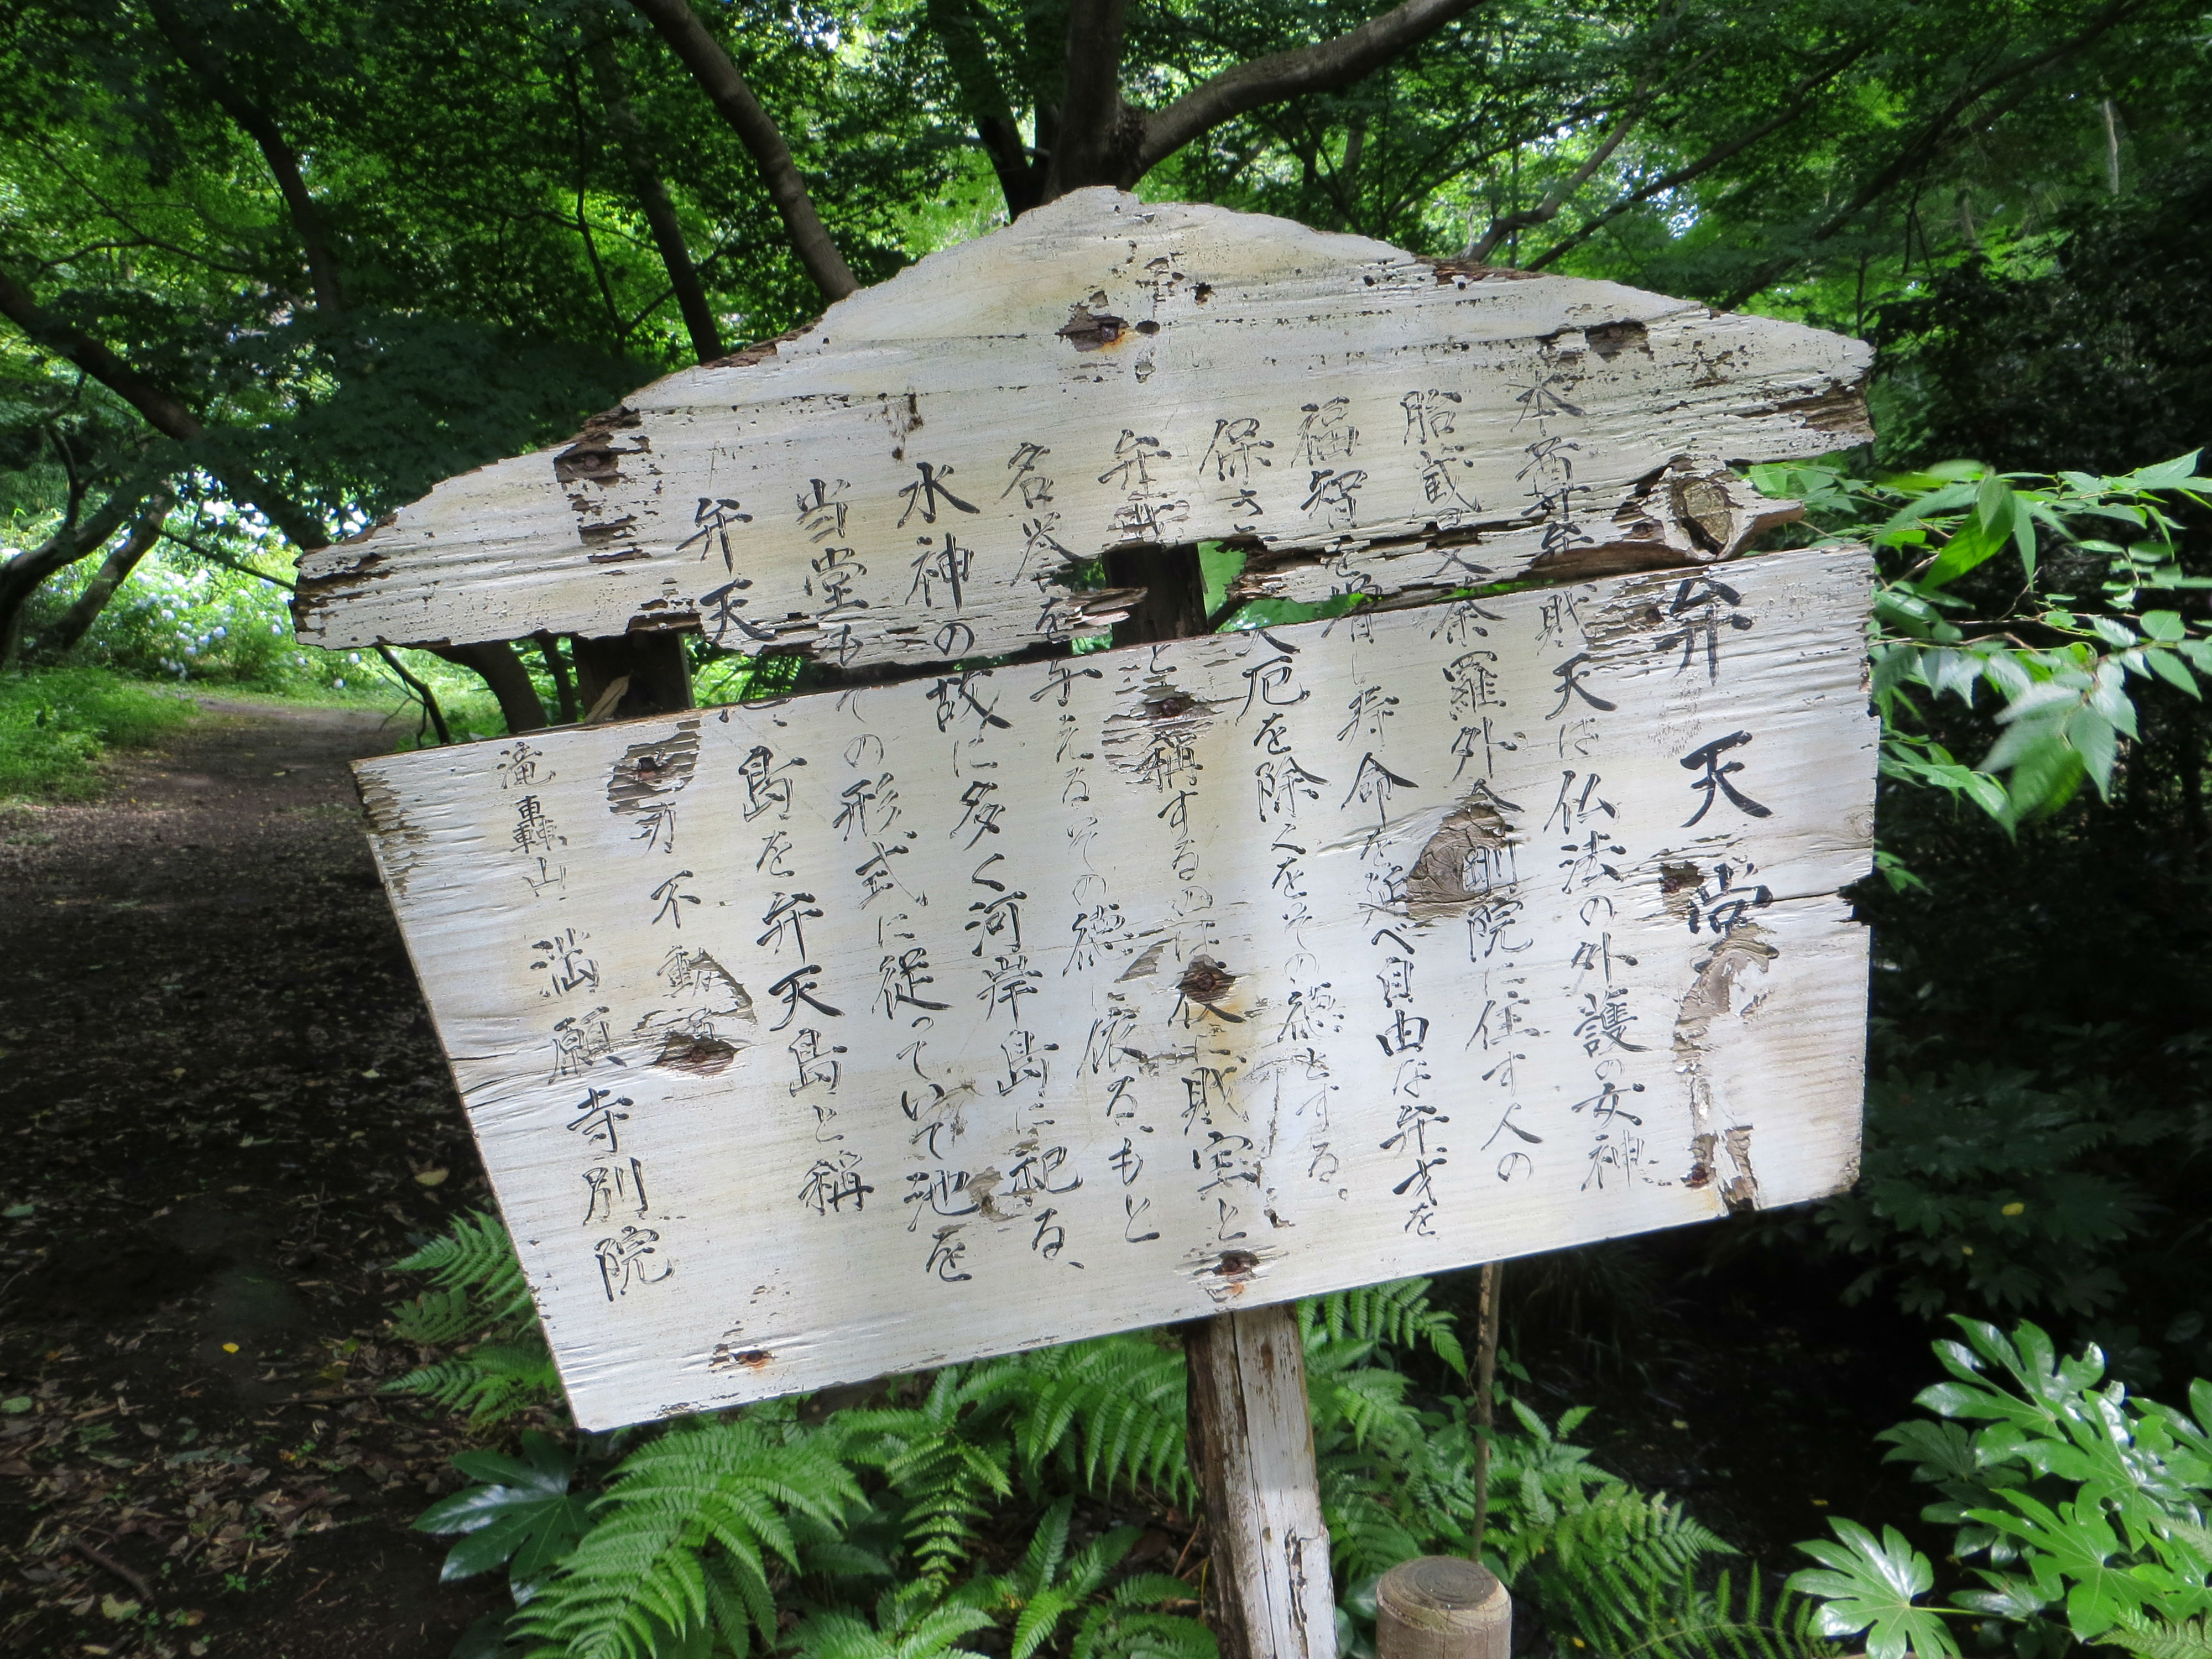 弁天堂
本尊弁財天は仏法の外護の女神
胎蔵曼荼羅外金剛院に住す人の
福智を増し寿命を延べ自由な弁才を
保ち災厄を除くをその徳とする。
弁才と称する 財宝と
名誉を与えるその徳に依るもと
水神の故に多く河岸島に祀る、
当堂もその形式に従っていて池を
弁天 島を弁天島と称
不動
滝轟山 満願寺別院